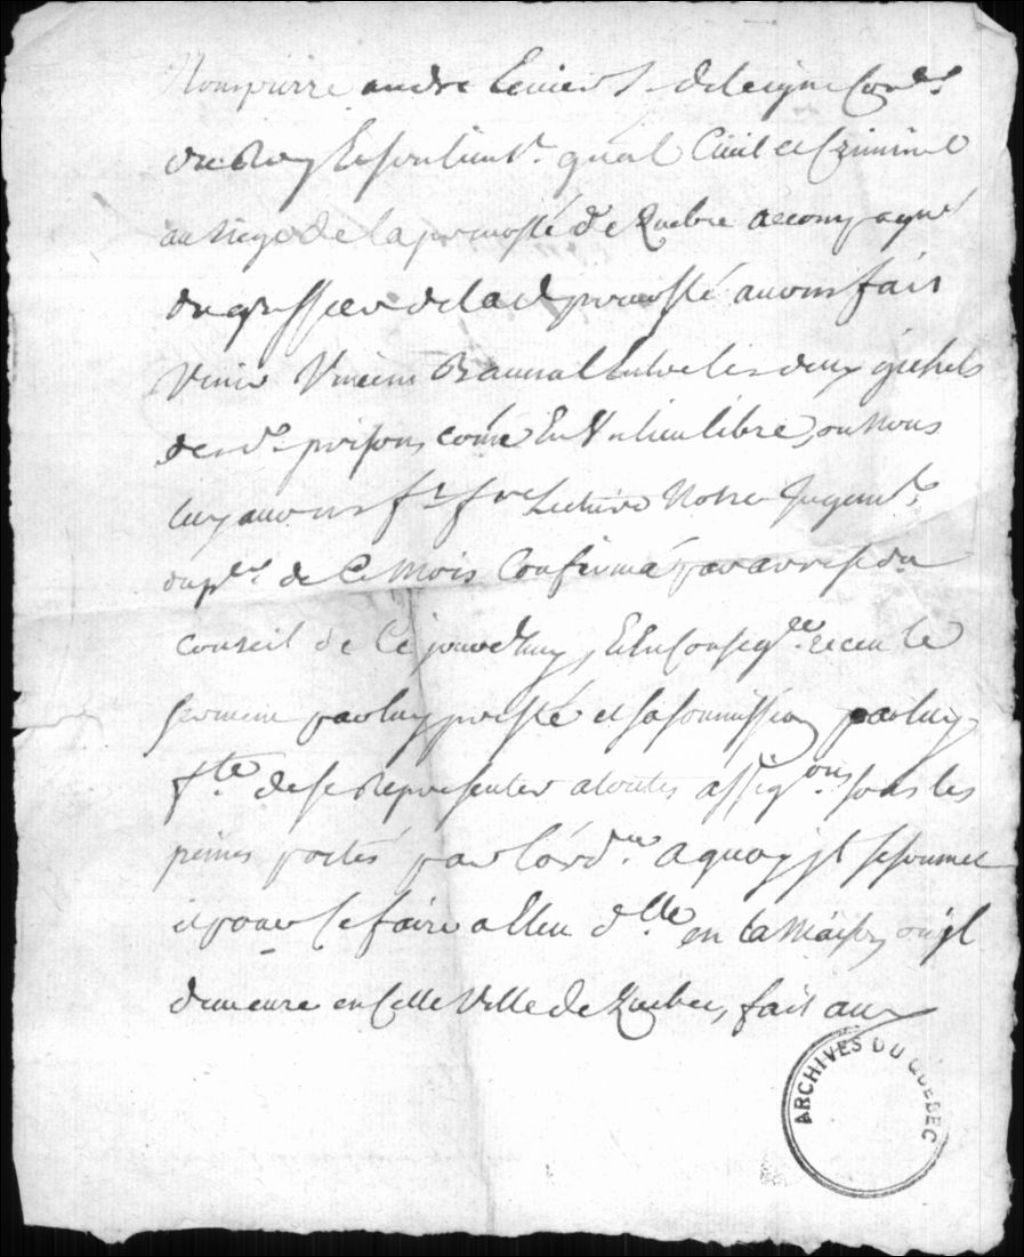 Nous pierre andre Leviers de leigne Con.er
du Roy Et son lieut.t gnal Ciuil et Criminel
au siege de la preuosté de Quebec accompagné
du greffier de lad preuosté auons fait
Venir Vincent Entre les deux guichets
des d. prisons, come En Vn lieu libre, ou Nous
luy auons ft fre Lecture Notre Jugem.t
du p.er de Ce Mois Confirmé par arrest du
Conseil de Ce jourdhuy, Et En Conseq.ce receu le
serment par luy presté et sa soumission par luy
f.te de se Representer a toutes assig.ons sous les
peines portés par l'ord.ce a quoy jl se soumet
et pour Ce faire a Eleu d.lle en la Maison ou jl
demeure en Cette Ville de Quebec, fait aux
ARCHIVES DU QUÉBEC